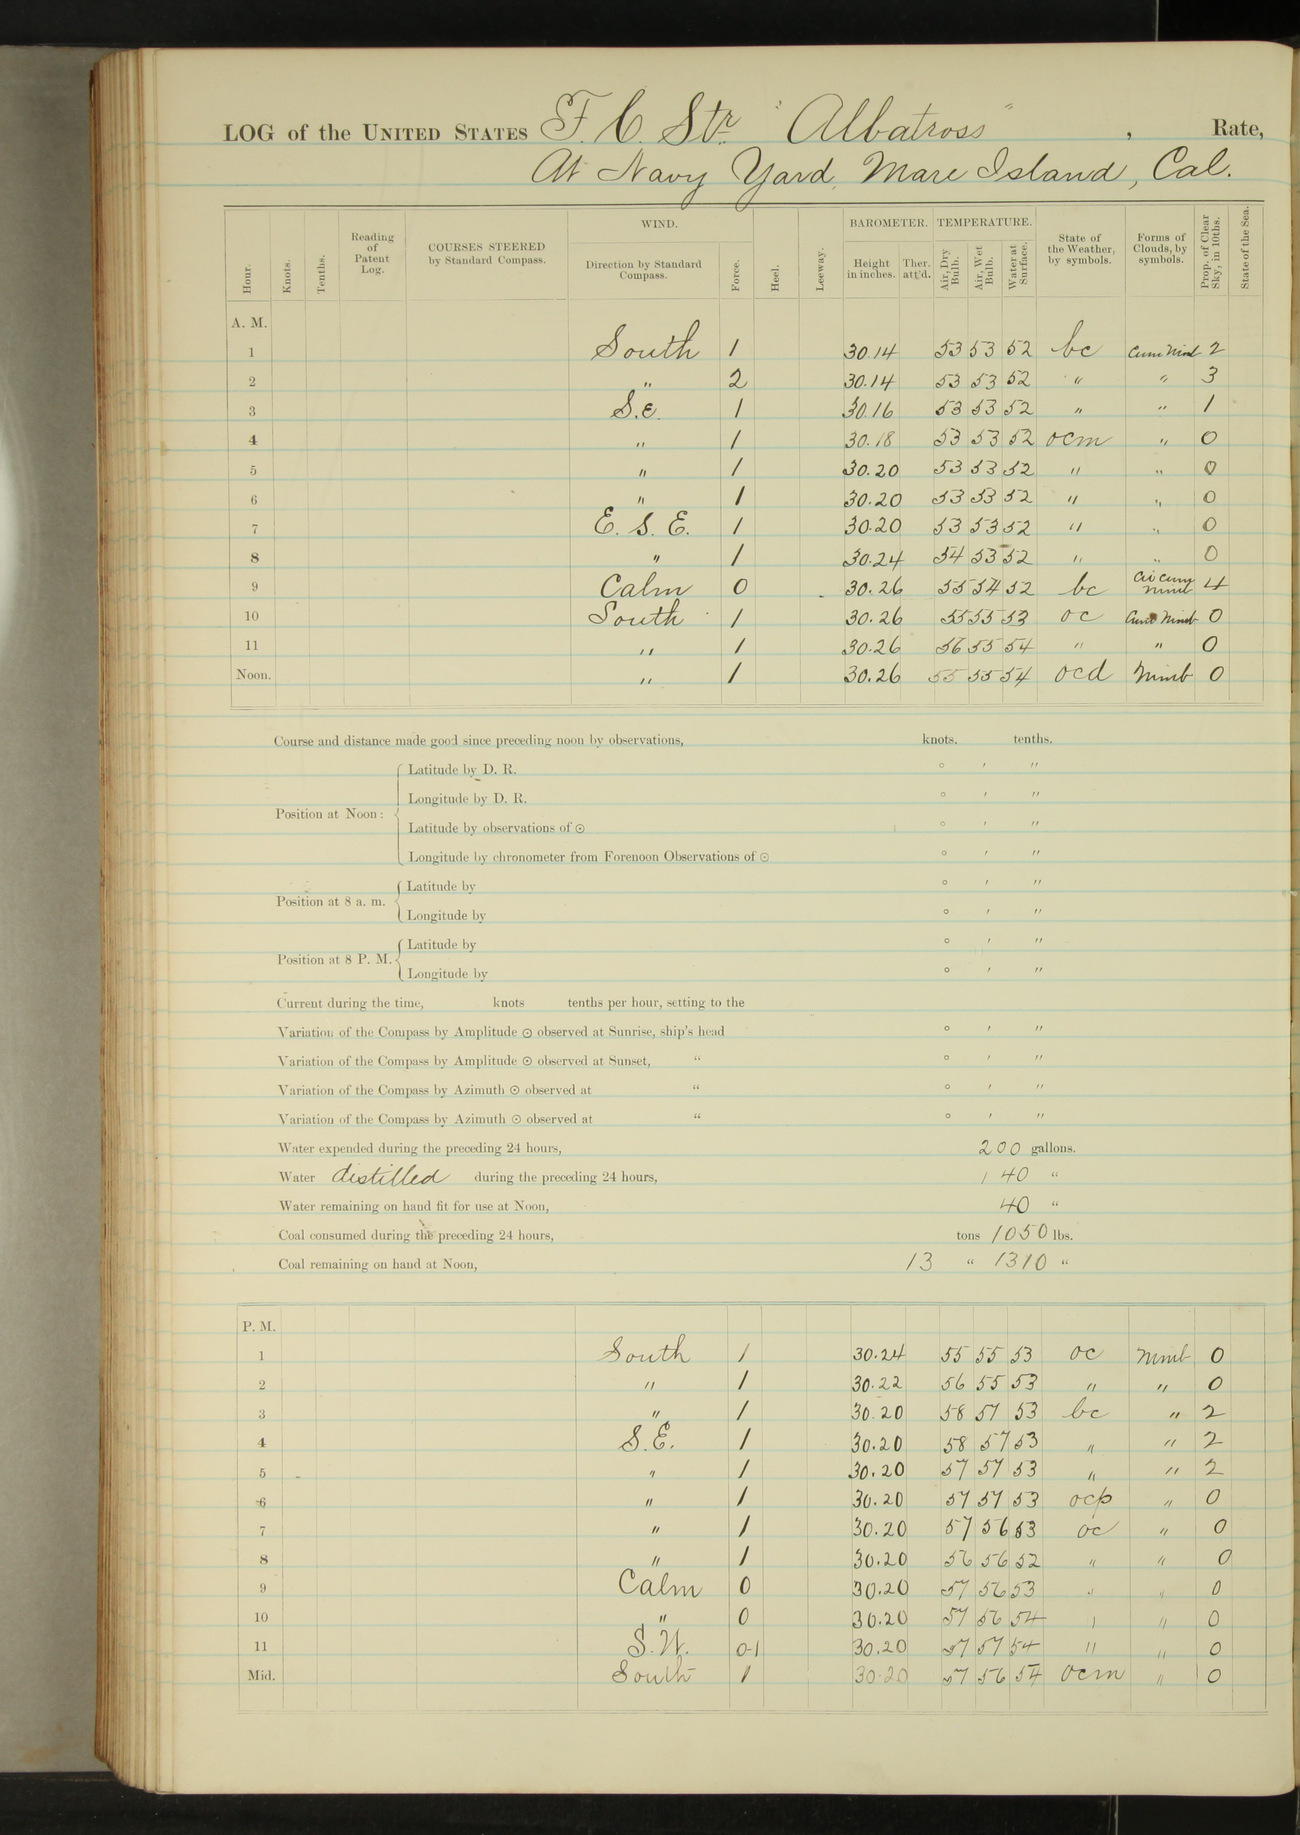 LOG of the UNITED STATES F. C. Str. "Albatross" , Rate,
At Navy Yard, Mare Island, Cal.
WIND. BAROMETER. TEMPERATURE.
Hour. Knots. Tenths. Reading of Patent Log. COURSES STEERED by Standard Compass. Direction by Standard Compass. Force. Heel. Leeway. Height in inches. Ther. att'd. Air, Dry Bulb. Air, Wet Bulb. Water at Surface. State of the Weather, by symbols. Forms of Clouds, by symbols. Prop. of Clear Sky, in 10ths. State of the Sea.
A. M.
1 South 1 30.14 53 53 52 bc Cum Nimb 2
2 " 2 30.14 53 53 52 " " 3
3 S.E. 1 30.16 53 53 52 " " 1
4 " 1 30.18 53 53 52 ocm " 0
5 " 1 30.20 53 53 52 " " 0
6 " 1 30.20 53 53 52 " " 0
7 E. S. E. 1 30.20 53 53 52 " " 0
8 " 1 30.24 54 53 52 " " 0
9 Calm 0 30.26 55 54 52 bc Cir Cum Nimb 4
10 South 1 30.26 55 55 53 oc Cum Nimb 0
11 " 1 30.26 56 55 54 " " 0
Noon. " 1 30.26 55 55 54 ocd Nimb 0
Course and distance made good since preceding noon by observations, knots. tenths.
Position at Noon: Latitude by D. R. ° ′ ″
Longitude by D. R. ° ′ ″
Latitude by observations of ☉ ° ′ ″
Longitude by chronometer from Forenoon Observations of ☉ ° ′ ″
Position at 8 a. m. Latitude by ° ′ ″
Longitude by ° ′ ″
Position at 8 P. M. Latitude by ° ′ ″
Longitude by ° ′ ″
Current during the time, knots tenths per hour, setting to the
Variation of the Compass by Amplitude ☉ observed at Sunrise, ship's head ° ′ ″
Variation of the Compass by Amplitude ☉ observed at Sunset, " ° ′ ″
Variation of the Compass by Azimuth ☉ observed at " ° ′ ″
Variation of the Compass by Azimuth ☉ observed at " ° ′ ″
Water expended during the preceding 24 hours, 200 gallons.
Water distilled during the preceding 24 hours, 140 "
Water remaining on hand fit for use at Noon, 40 "
Coal consumed during the preceding 24 hours, tons 1050 lbs.
Coal remaining on hand at Noon, 13 " 1310 "
P. M.
1 South 1 30.24 55 55 53 oc Nimb 0
2 " 1 30.22 56 55 53 " " 0
3 " 1 30.20 58 57 53 bc " 2
4 S.E. 1 30.20 58 57 53 " " 2
5 " 1 30.20 57 57 53 " " 2
6 " 1 30.20 57 57 53 ocp " 0
7 " 1 30.20 57 56 53 oc " 0
8 " 1 30.20 56 56 52 " " 0
9 Calm 0 30.20 57 56 53 " " 0
10 " 0 30.20 57 56 54 " " 0
11 S.W. 0-1 30.20 57 57 54 " " 0
Mid. South 1 30.20 57 56 54 ocm " 0